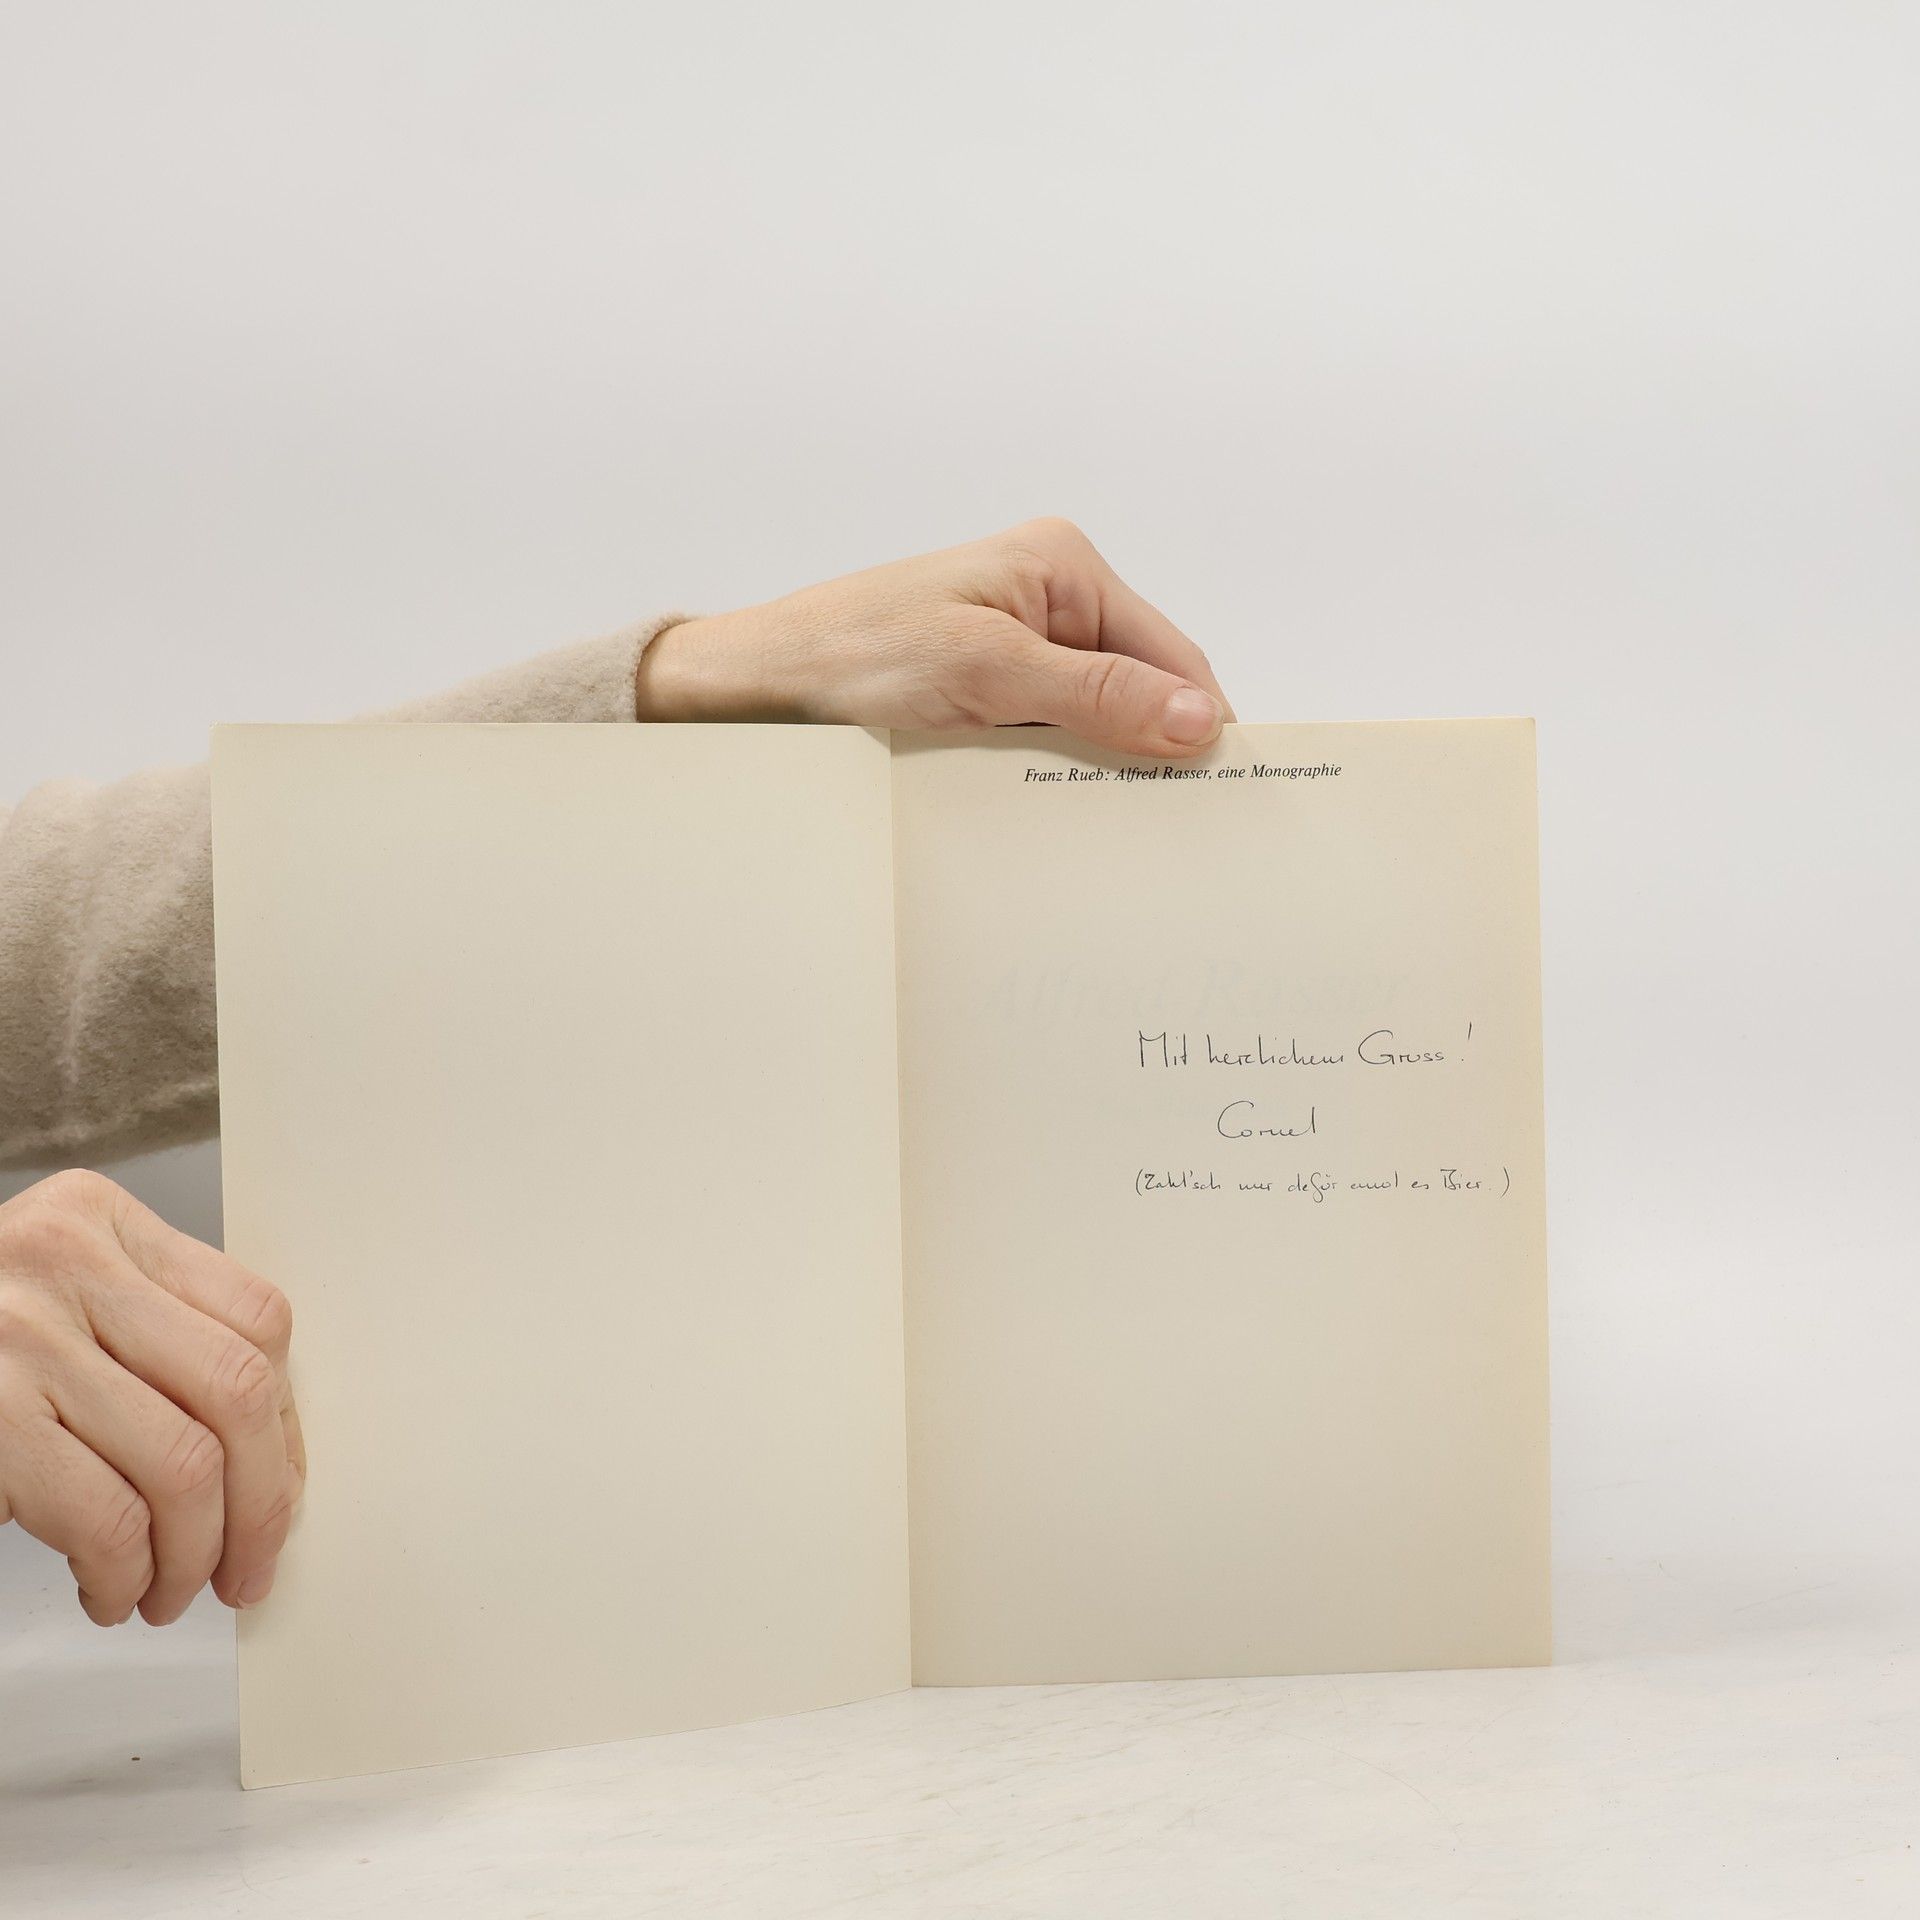 Franz Rueb: Alfred Rasser, eine Monographie
Alfred Rasser
Mit herzlichem Gruss!
Cornel
(Zahl'sch mir defür emol es Bier.)